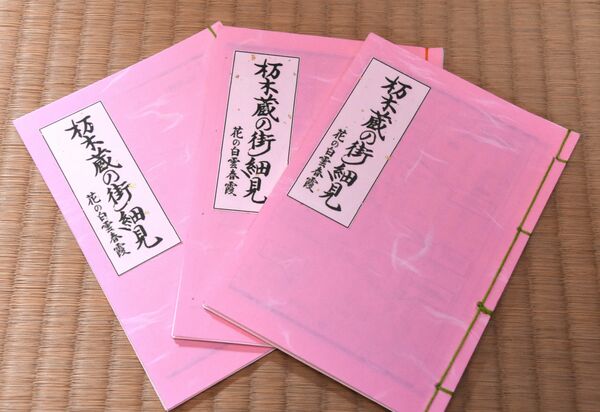 栃木蔵の街細見
花の白雲春霞
栃木蔵の街細見
花の白雲春霞
栃木蔵の街細見
花の白雲春霞